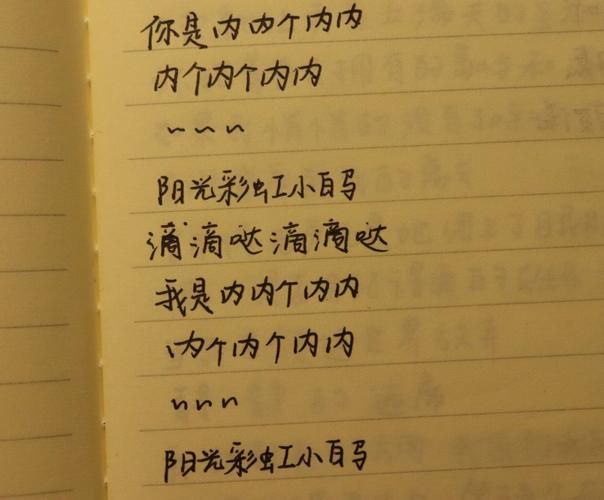 你是内内个内内
内个内个内内
~ ~ ~
阳光彩虹小白马
滴滴哒滴滴哒
我是内内个内内
内个内个内内
~ ~ ~
阳光彩虹小白马